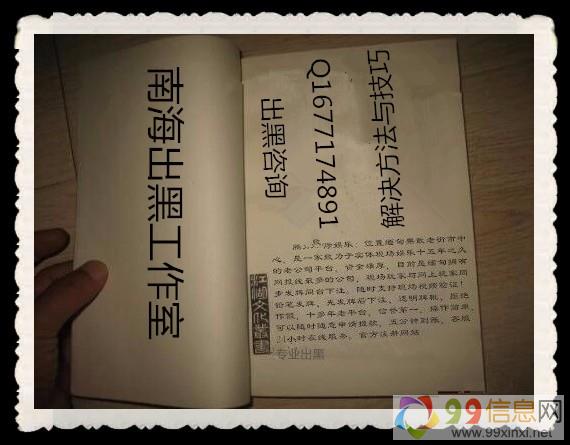 南海出黑工作室
解决方法与技巧
Q1677174891
出黑咨询
际娱乐，位置缅甸果敢老街市中
心，是一家致力于实体现场娱乐十五年之久
的老公司平台，资金雄厚，目前是缅甸拥有
网投线最多的公司，现场玩家与网上玩家同
步发牌同台下注，随时支持现场视频验证！
铅笔发牌，先发牌后下注，透明牌靴，拒绝
作假，十多年老平台，信誉第一，操作简单，
可以随时随意申请提款，五分钟到账，客服
24小时在线服务，官方注册网站
文化叢書
专业出黑
99信息网
www.99xinxi.net